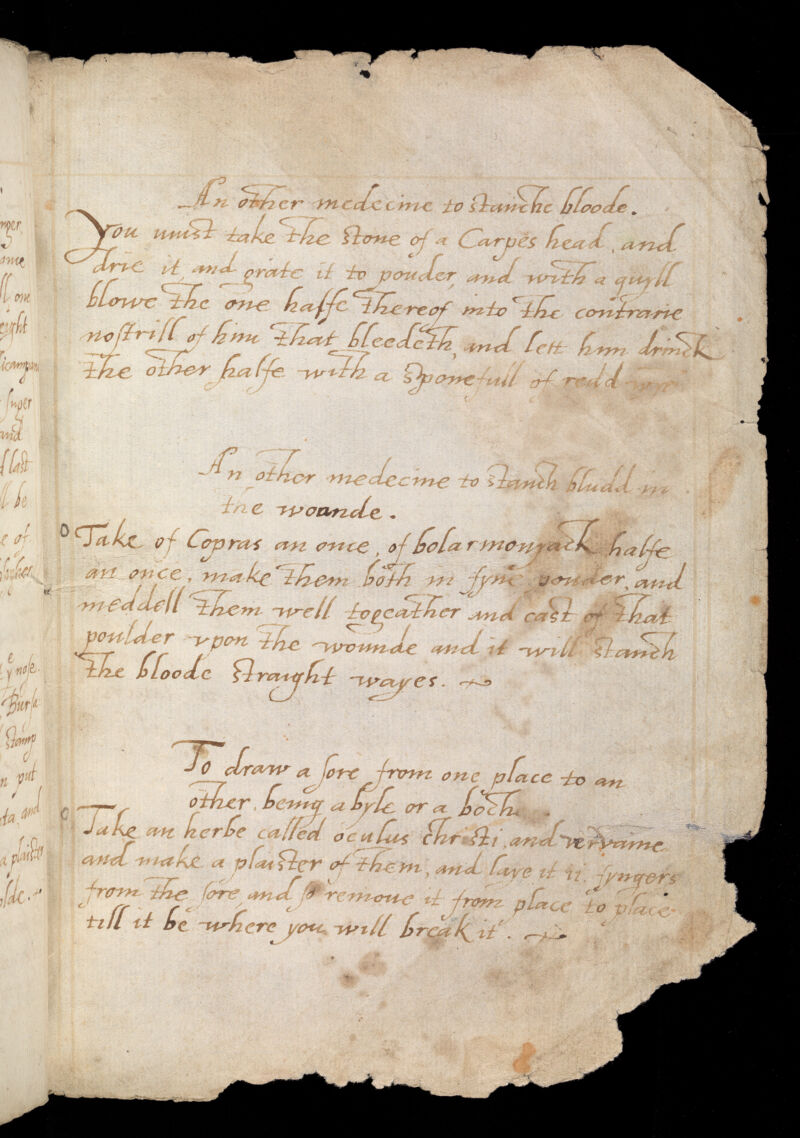 An other medecine to stanche bloode.
You must take the stone of a Carpes head, and
drie it, and grate it to pouder, and with a quyll
blowe the one halfe thereof into the contrarie
nostrill of him that bleedeth, and lett him drinck
the other halfe with a sponefull of redd
An other medecine to stanch bludd in
the wounde.
Take of Copras an once, of bolarmonyack halfe
an once, make them both in fyne pouder, and
meddell them well togeather and cast of that
poulder vpon the wounde and it will stanch
the bloode straight wayes.
To draw a sore from one place to an
other, being a byle or a boch.
Take an herbe called oculus christi, and vervaine
and make a plaister of them, and laye it ii. fyngers
from the sore and so remoue it from place to place
till it be where you will break it.